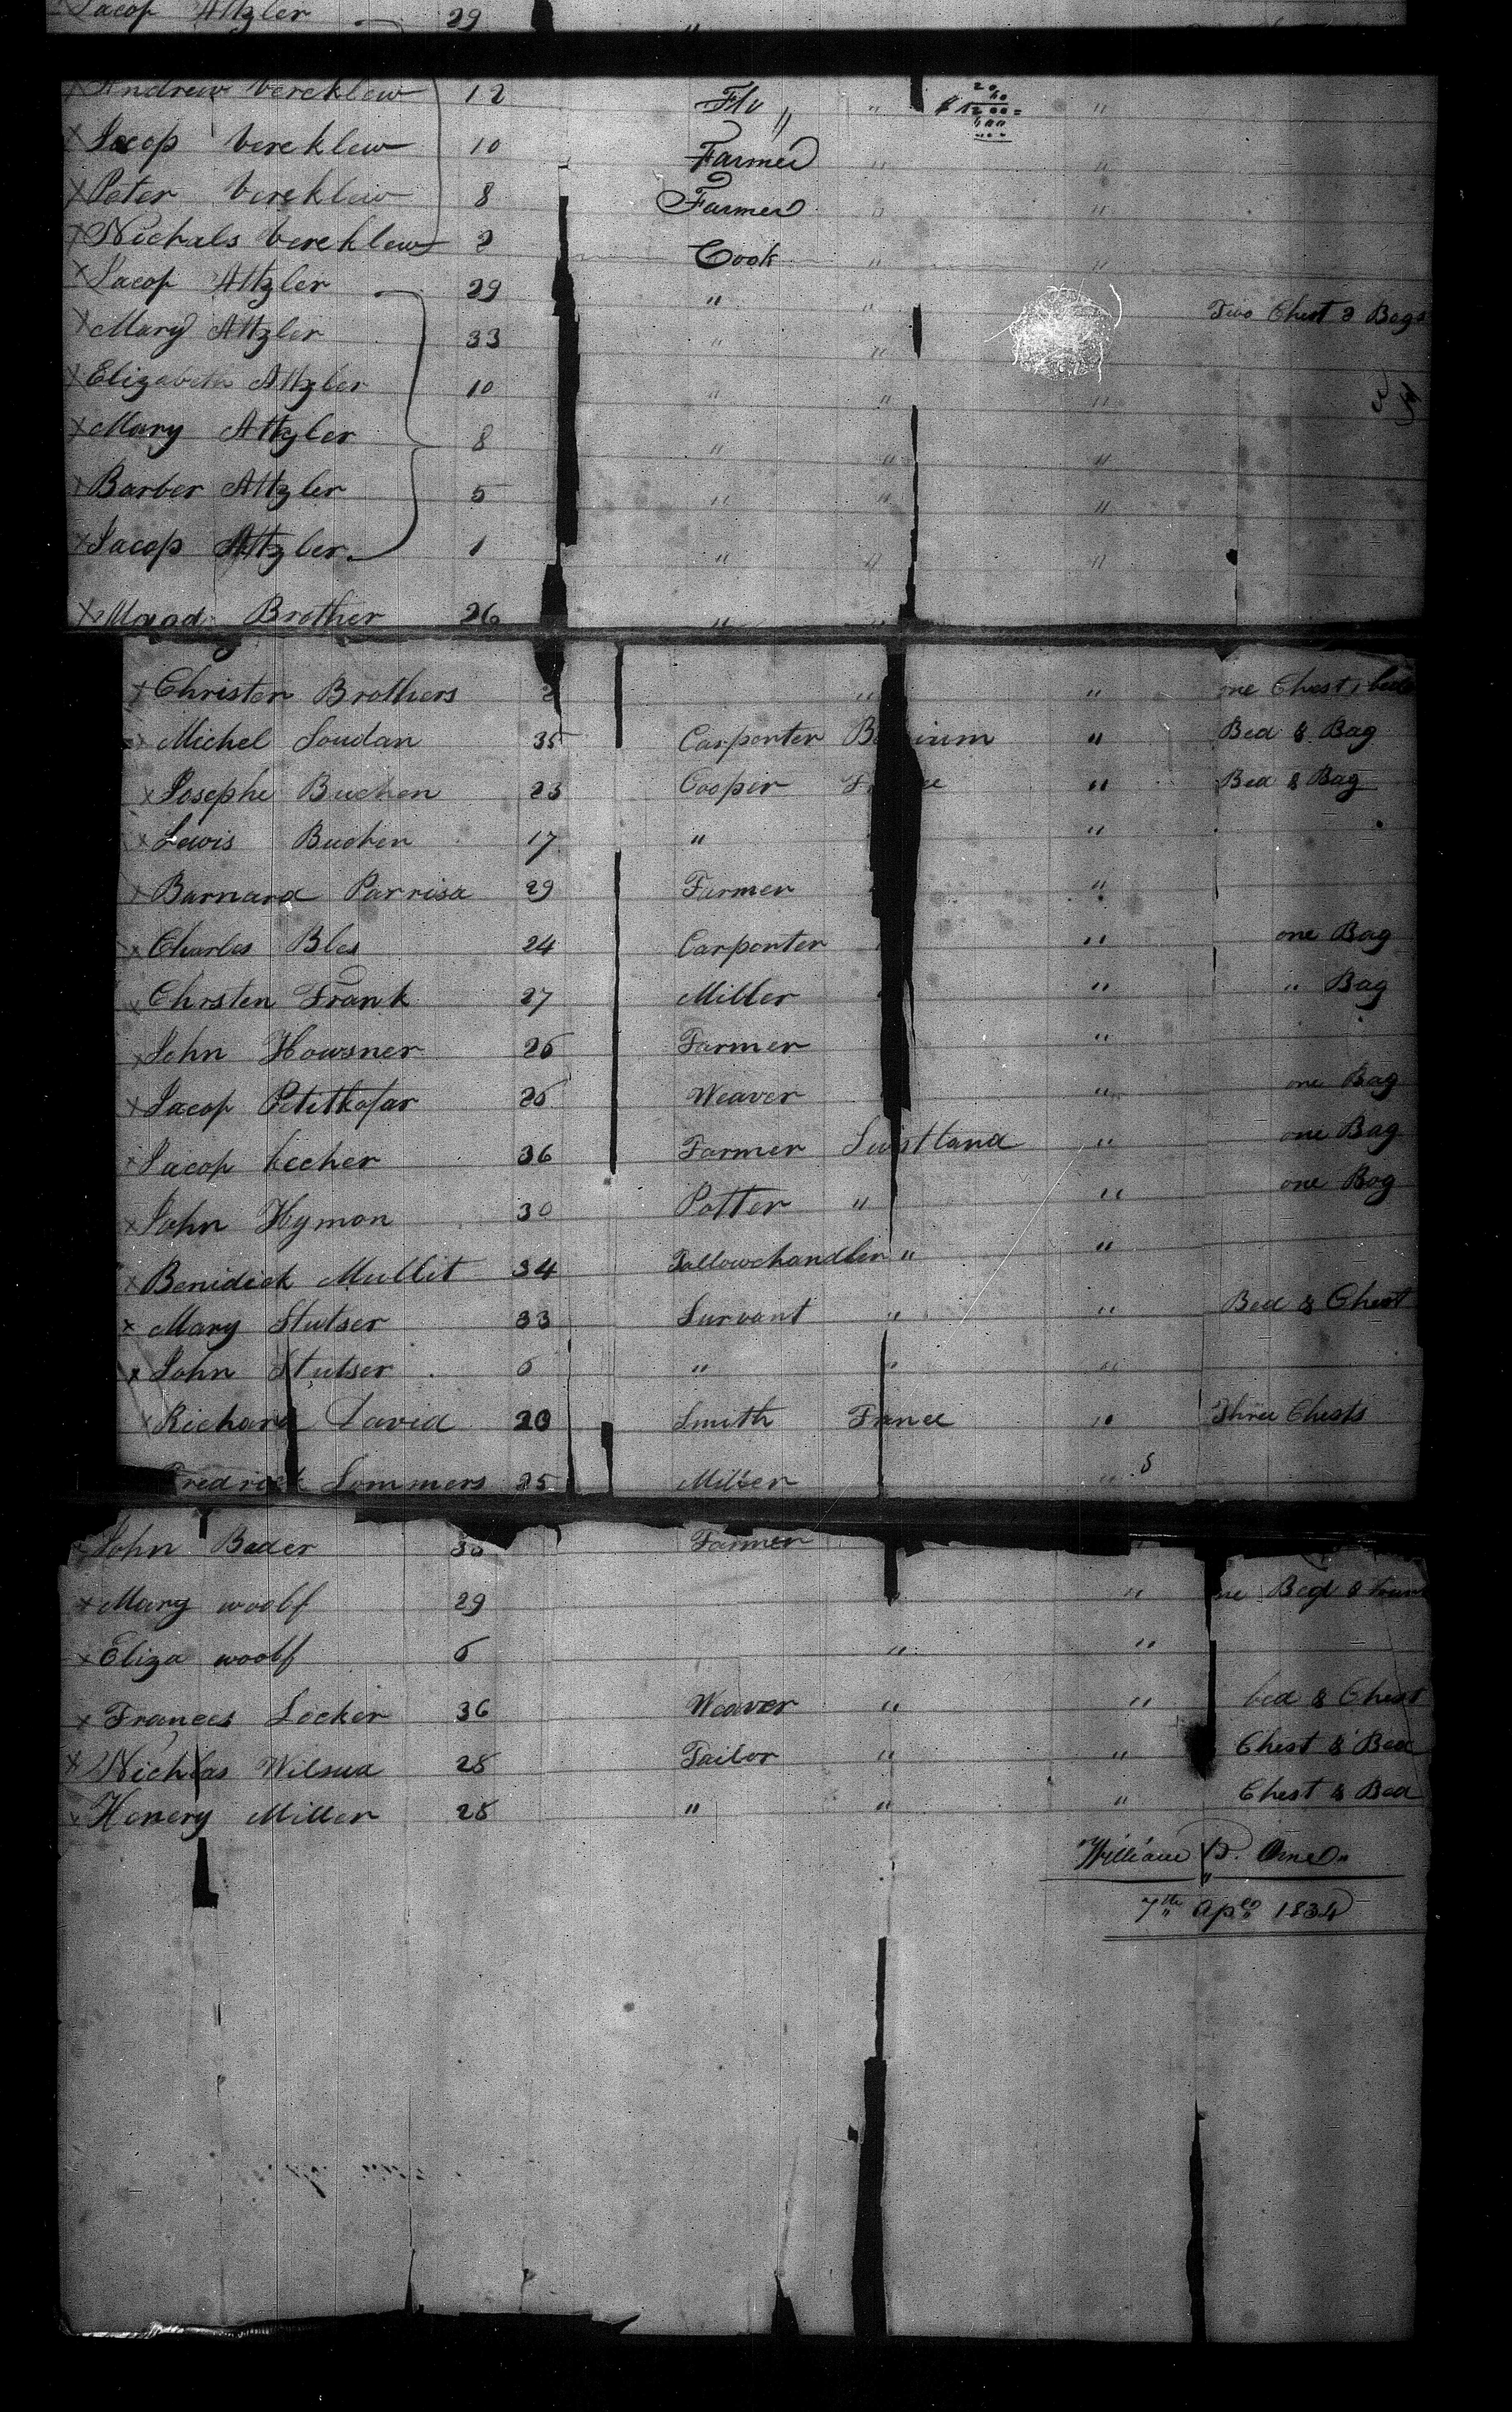 Jacop Attzler 29 "
Andrew Vereklew 12 Do " " $ 1200 "
Jacop Vereklew 10 Farmer " "
Peter Vereklew 8 Farmer " "
Nichals Vereklew 2 Cook " "
Jacop Attzler 29 " "
Mary Attzler 33 " " Two Chest 2 Bags
Elizabeth Attzler 10 " " "
Mary Attzler 8 " " "
Barber Attzler 5 " " "
Jacop Attzler 1 " " "
Brother 26 " "
Christen Brothers 2 " " one Chest 1 bed
Michel Soudan 35 Carpenter B ium " Bed & Bag
Josephe Buchen 23 Cooper F ce " Bed & Bag
Lewis Buchen 17 " "
Barnard Parrisa 29 Farmer "
Charles Bles 24 Carpenter " one Bag
Chrsten Frank 27 Miller " " Bag
John Howsner 26 Farmer "
Jacop Petitkofar 26 Weaver " one Bag
Jacop Vecher 36 Farmer Swistland " one Bag
John Hymon 30 Potter " " one Bag
Benidick Mullit 34 Tallowchandler " "
Mary Stutser 33 Survant " " Bed & Chest
John Stutser 6 " " "
Richard David 20 Smith France " Three Chests
Fredrick Sommers 25 Miller "
John Bader 36 Farmer "
Mary woolf 29 " " ne Bed &
Eliza woolf 6 " "
Frances Locker 36 Weaver " " bed & Chest
Nichlas Wilsua 28 Tailor " " Chest & Bed
Henery Miller 28 " " " Chest & Bed
William B. Orne
7th Apl 1834